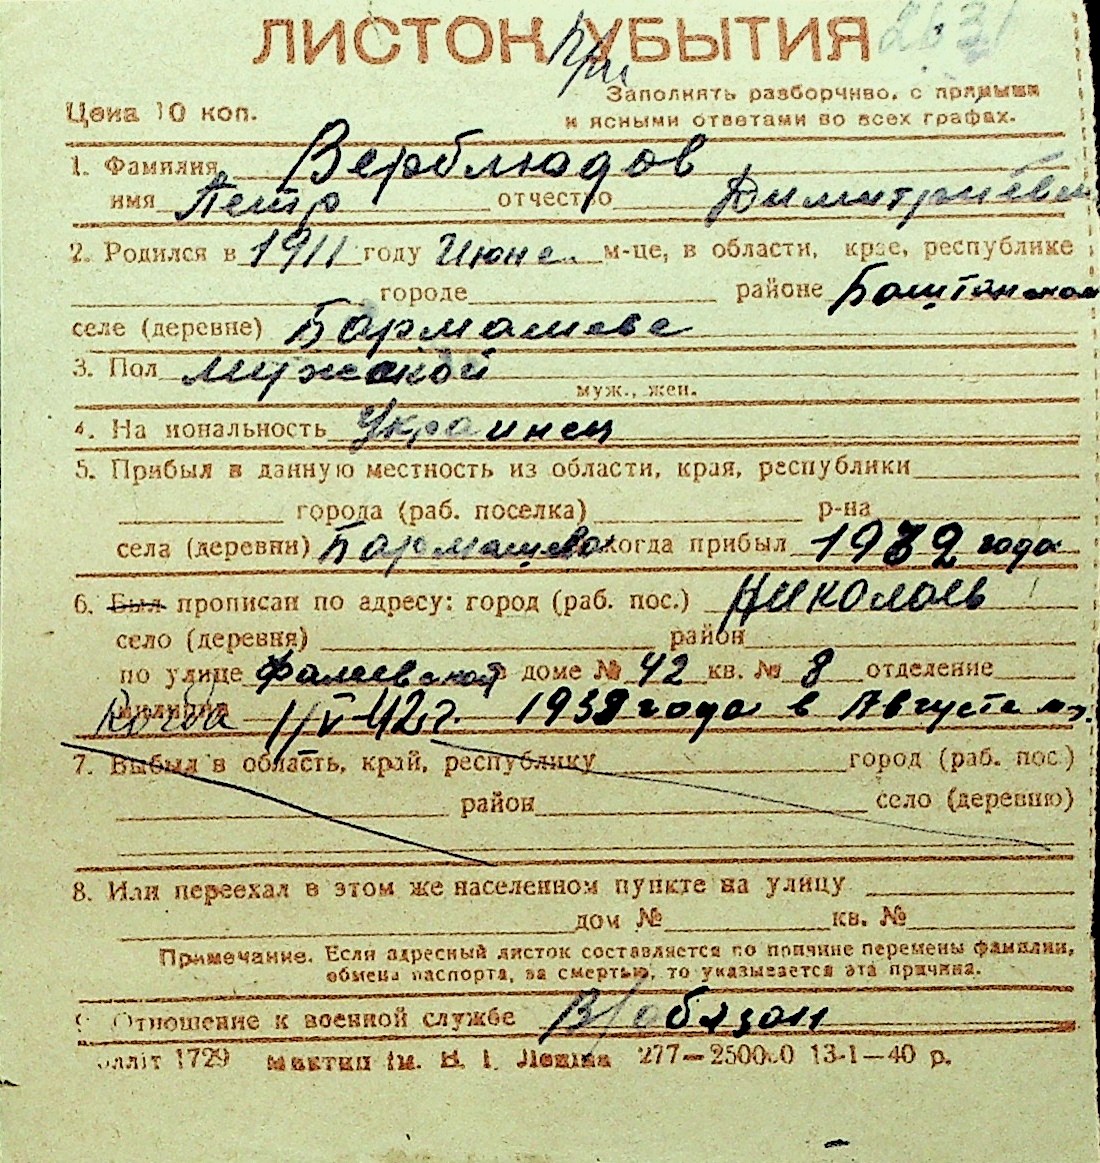 ЛИСТОК УБЫТИЯ
При
Цена 10 коп.
Заполнять разборчиво, с прямыми
и ясными ответами во всех графах.
1. Фамилия Верблюдов
имя Петр отчество Димитриеви
2. Родился в 1911 году Июне м-це, в области, крае, республике
городе районе Баштанском
селе (деревне) Бармашеве
3. Пол мужской
муж., жен.
4. На иональность Украинец
5. Прибыл в данную местность из области, края, республики
города (раб. поселка) р-на
села (деревни) Бармашево когда прибыл 1932 года
6. Был прописан по адресу: город (раб. пос.) Николаев
село (деревня) район
по улице Фалеевской доме № 42 кв. № 8 отделение
милиции
когда 1/V-42г. 1939 года в Августе м-ц.
7. Выбыл в область, край, республику город (раб. пос.)
район село (деревню)
8. Или переехал в этом же населенном пункте на улицу
дом № кв. №
Примечание. Если адресный листок составляется по причине перемены фамилии,
обмена паспорта, за смертью, то указывается эта причина.
9. Отношение к военной службе В/обязан
олліт 1729 Миктип ім. В. І. Леніна 277—250000 13-1—40 р.